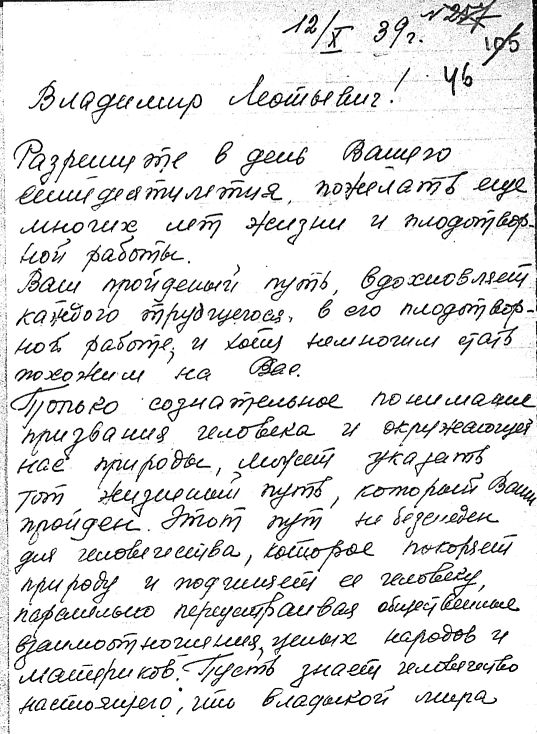 12/X 39г. №257
105
46
Владимир Леотьевич!
Разрешите в день Вашего
семидесятилетия, пожелать еще
многих лет жизни и плодотвор-
ной работы.
Ваш пройденый путь, вдохновляет
каждого трудящегося, в его плодотвор-
ной работе, и хотя немногим стать
похожим на Вас.
Только сознательное понимание
призвания человека и окружающей
нас природы, может указать
тот жизненный путь, который Вами
пройден. Этот пут не безследен
для человечества, которое покоряет
природу и подчиняет ее человеку,
паралельно переустраивая общественные
взаимоотношения, целых народов и
материков. Пусть знает человечество
настоящего, что владыкой мира